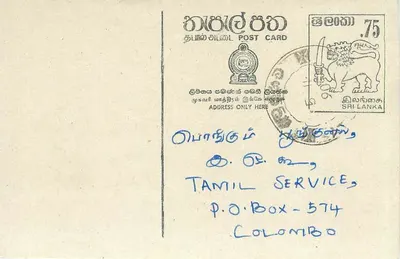 තැපැල් පත
தபால் அட்டை POST CARD
ශ්‍රී ලංකා
.75
இலங்கை
SRI LANKA
ලිපිනය පමණක් මෙහි ලියන්න
முகவரி மாத்திரம் இங்கே
ADDRESS ONLY HERE
பொங்கும் பூங்குழல்,
இ. ஒ. கூ,
TAMIL SERVICE,
P.O.BOX - 574
COLOMBO